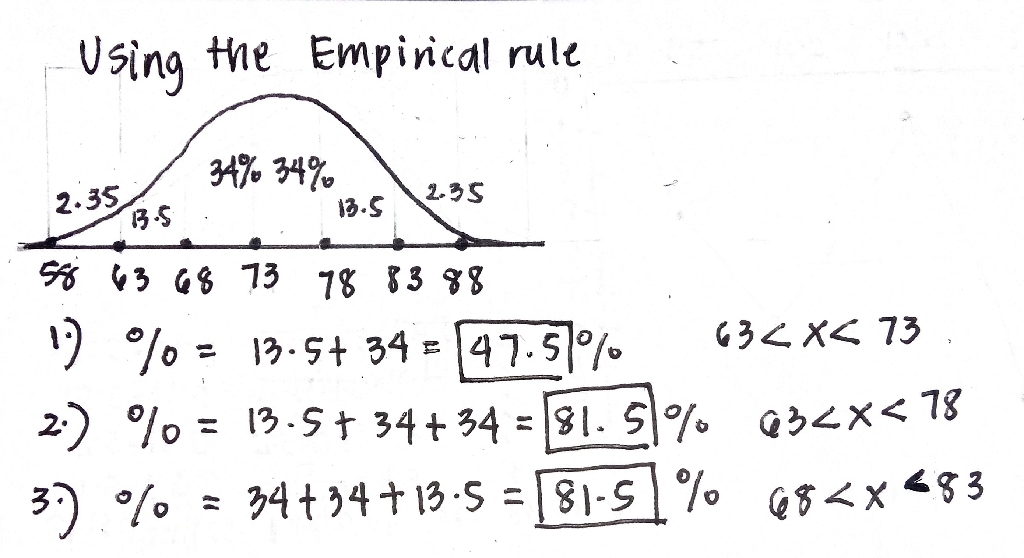 Using the Empirical rule
34% 34%
2.35 13.5 13.5 2.35
58 63 68 73 78 83 88
1.) % = 13.5+ 34 = 47.5 % 63 < X < 73
2.) % = 13.5 + 34 + 34 = 81.5 % 63 < X < 78
3.) % = 34 + 34 + 13.5 = 81.5 % 68 < X < 83